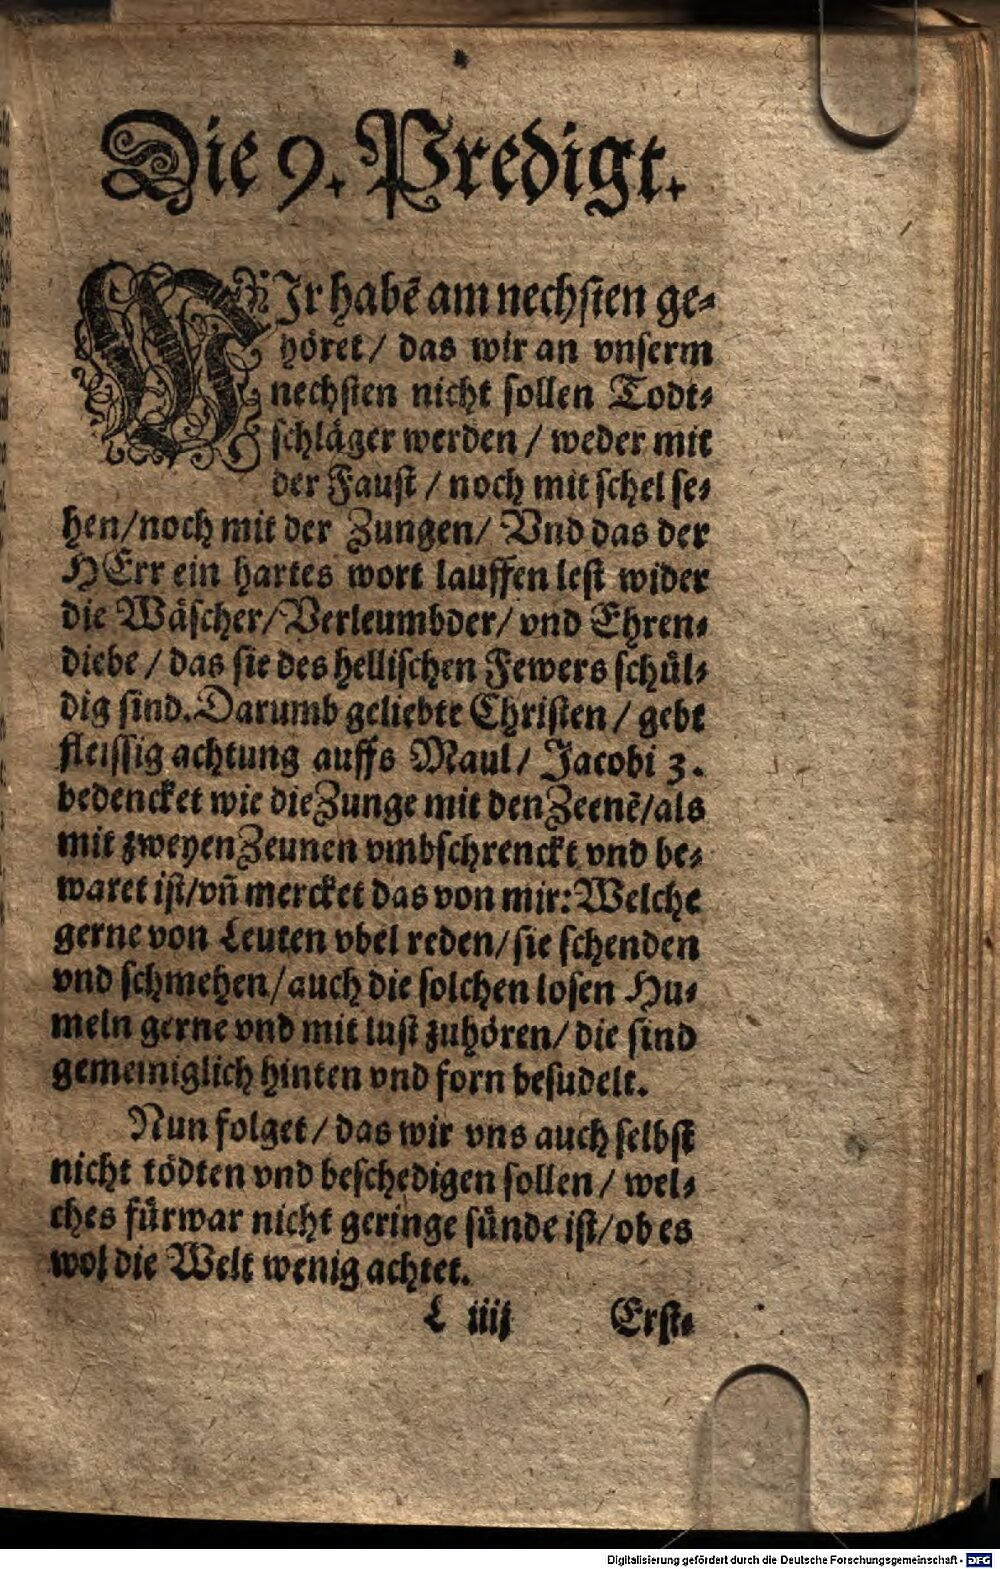 Die 9. Predigt.
WIr habē am nechsten ge-
höret / das wir an vnserm
nechsten nicht sollen Todt-
schläger werden / weder mit
der Faust / noch mit schel se-
hen/noch mit der Zungen/ Vnd das der
HErr ein hartes wort lauffen lest wider
die Wäscher/Verleumbder/ vnd Ehren-
diebe / das sie des hellischen Fewers schůl-
dig sind. Darumb geliebte Christen / gebt
fleissig achtung auffs Maul/ Jacobi 3.
bedencket wie die Zunge mit den Zeenē/als
mit zweyen Zeunen vmbschrenckt vnd be-
waret ist/vñ mercket das von mir: Welche
gerne von Leuten vbel reden/sie schenden
vnd schmehen/auch die solchen losen Hu-
meln gerne vnd mit lust zuhören/ die sind
gemeiniglich hinten vnd forn besudelt.
Nun folget / das wir vns auch selbst
nicht tödten vnd beschedigen sollen / wel-
ches fůrwar nicht geringe sůnde ist/ob es
wol die Welt wenig achtet.
L iiij Erst-
Digitalisierung gefördert durch die Deutsche Forschungsgemeinschaft - DFG